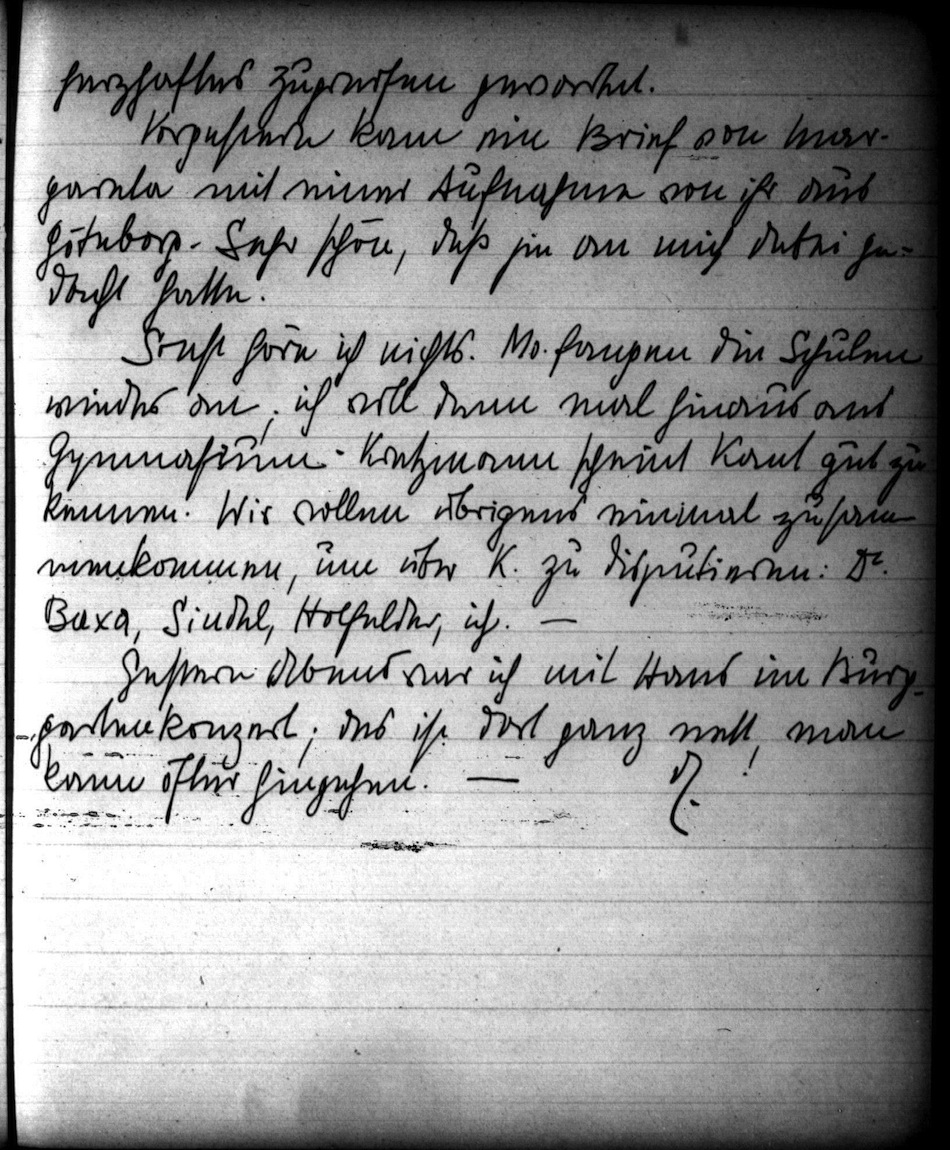 herzhaftes Zugreifen gewartet.
Vorgestern kam ein Brief von Mar-
gareta mit einer Aufnahme von ihr aus
Göteborg. Sehr schön, daß sie an mich dabei ge-
dacht hatte.
Sonst höre ich nichts. Mo. fangen die Schulen
wieder an, ich will dann mal hinaus ans
Gymnasium. Kretzmann scheint Kant gut zu
kennen. Wir wollen übrigens einmal zusam
menkommen, um über K. zu disputieren: Dr.
Baxa, Siudel, Holfelder, ich. —
Gestern Abend war ich mit Hans im Burg-
gartenkonzert; das ist dort ganz nett, man
kann öfter hingehen. —